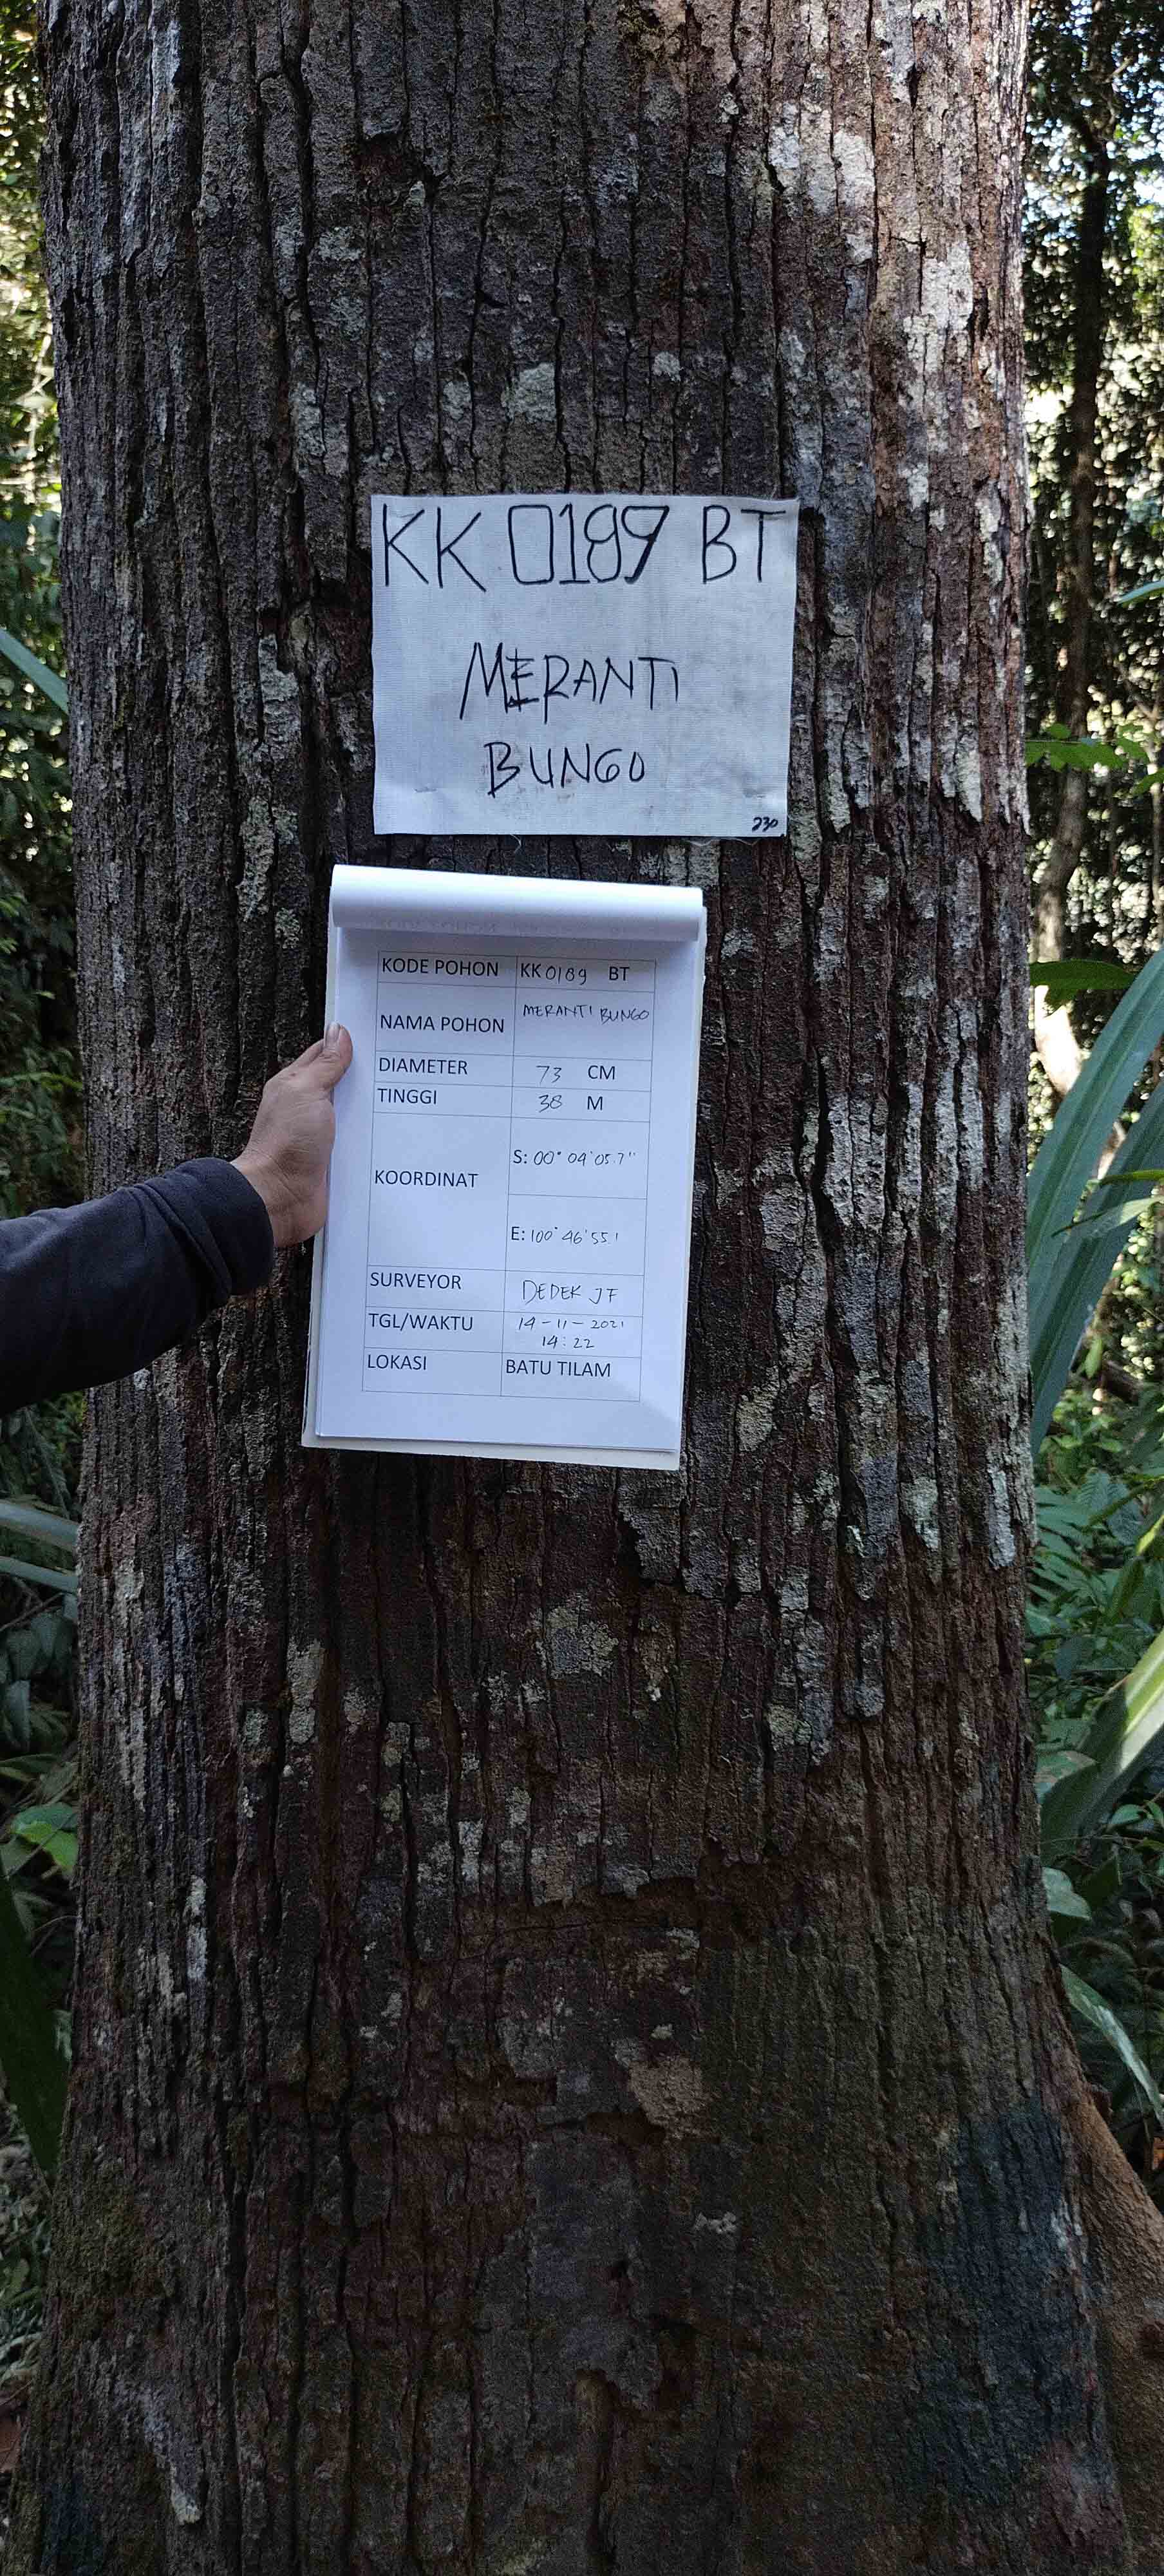 KK 0189 BT
MERANTI
BUNGO
230
KODE POHON KK 0189 BT
NAMA POHON MERANTI BUNGO
DIAMETER 73 CM
TINGGI 38 M
KOORDINAT
S: 00° 04' 05.7"
E: 100° 46' 55.1
SURVEYOR DEDEK JF
TGL/WAKTU 14-11-2021
14:22
LOKASI BATU TILAM